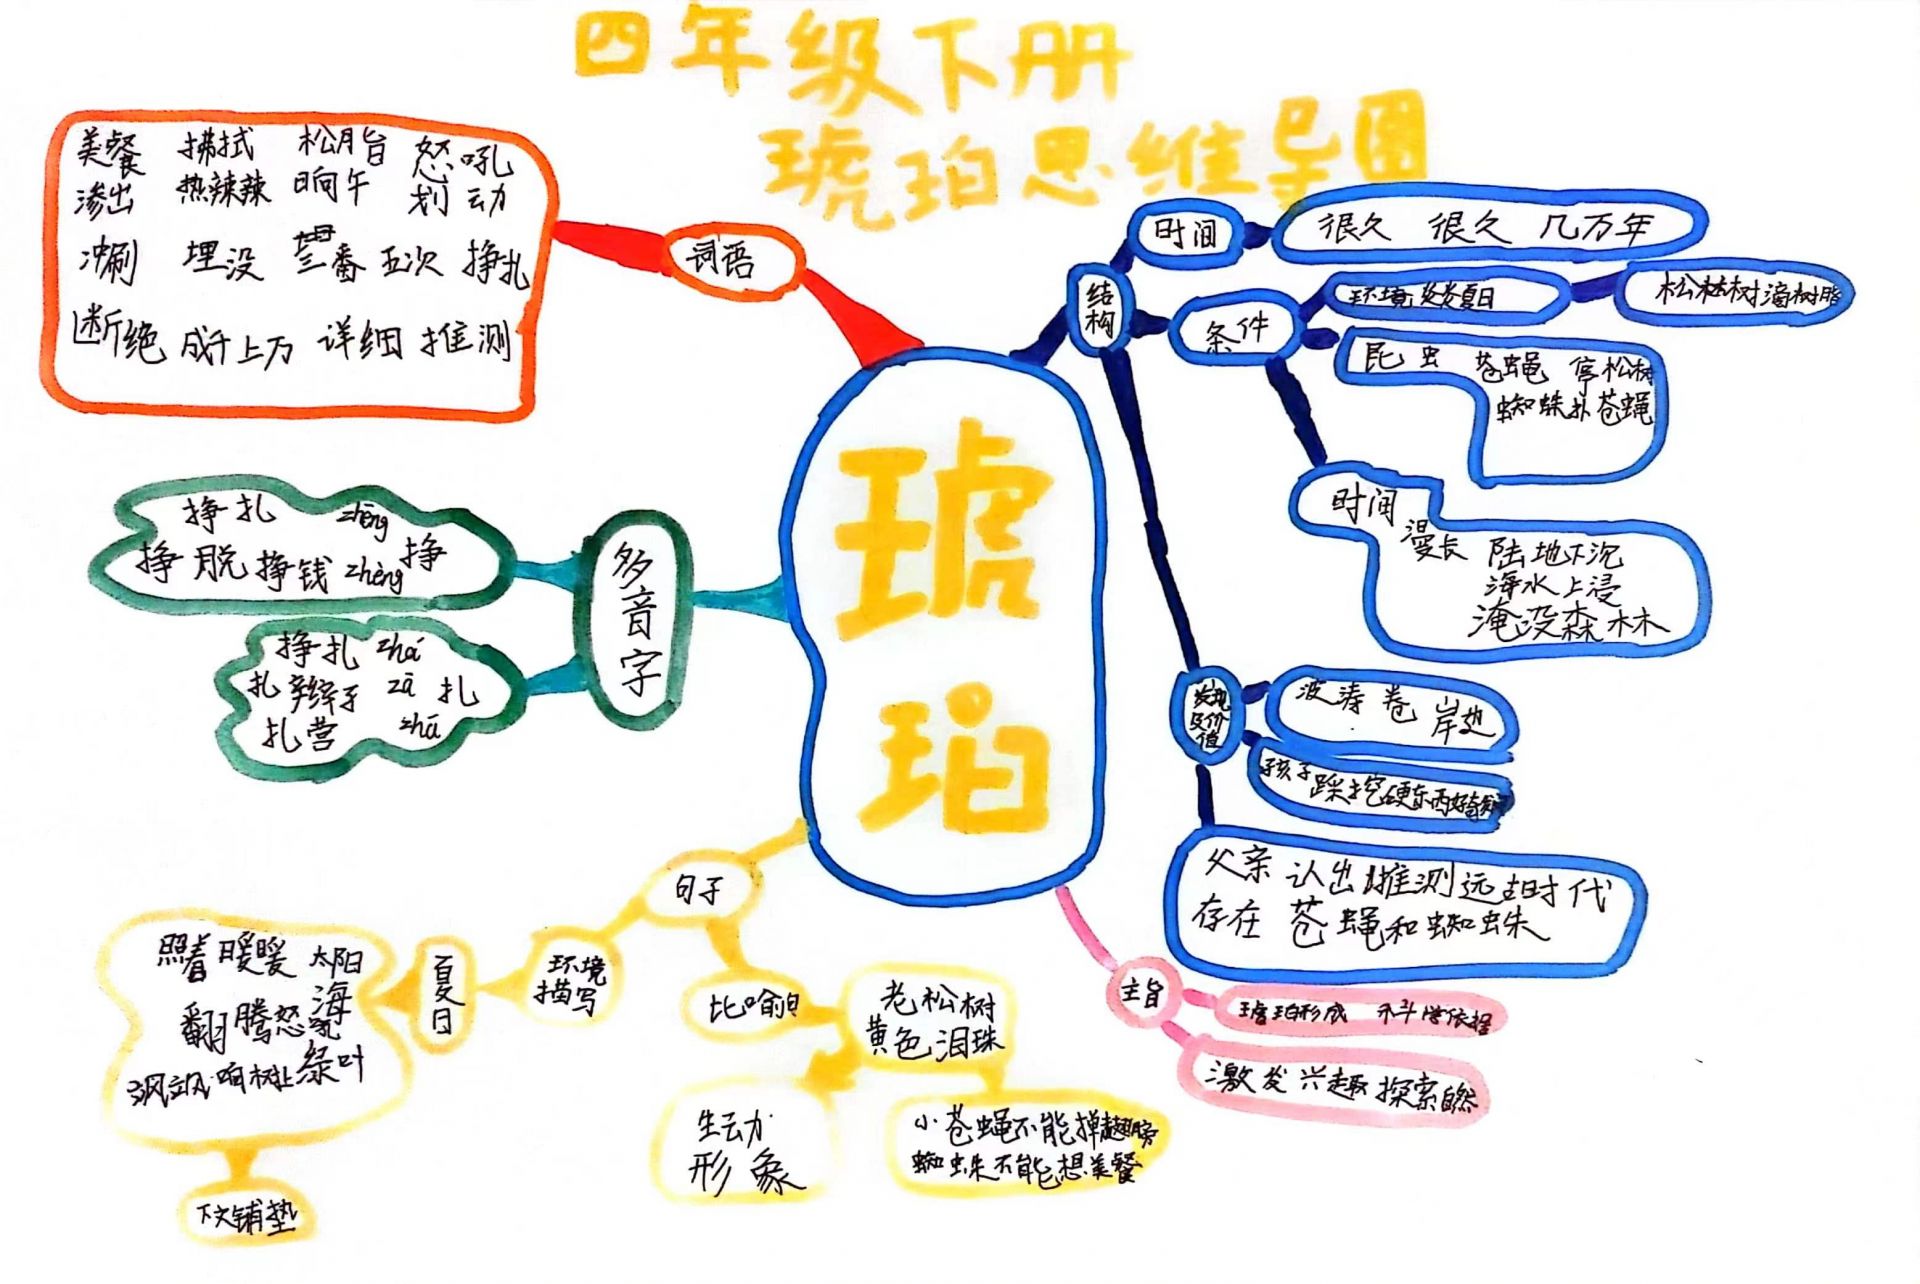 四年级下册
琥珀思维导图
美餐 拂拭 松脂 怒吼
渗出 热辣辣 晌午 划动
冲刷 埋没 三番五次 挣扎
断绝 成千上万 详细 推测
词语
琥珀
多音字
挣扎 zhēng
挣脱 挣钱 zhèng 挣
挣扎 zhá
扎辫子 zā 扎
扎营 zhā
句子
环境
描写
夏
日
照着 暖暖 太阳
翻腾怒吼 海
响 绿叶
下文铺垫
比喻句
老松树
黄色泪珠
生动
形象
小苍蝇不能掸翅膀
蜘蛛不能想美餐
结构
时间
很久 很久 几万年
条件
环境:炎炎夏日
松树滴树脂
昆虫 苍蝇 停松树
蜘蛛扑苍蝇
时间
漫长 陆地下沉
海水上浸
淹没森林
发现
及价
值
波涛卷 岸边
孩子踩挖硬东西
父亲认出推测远古时代
存在苍蝇和蜘蛛
主旨
琥珀形成 科学依据
激发兴趣探索自然